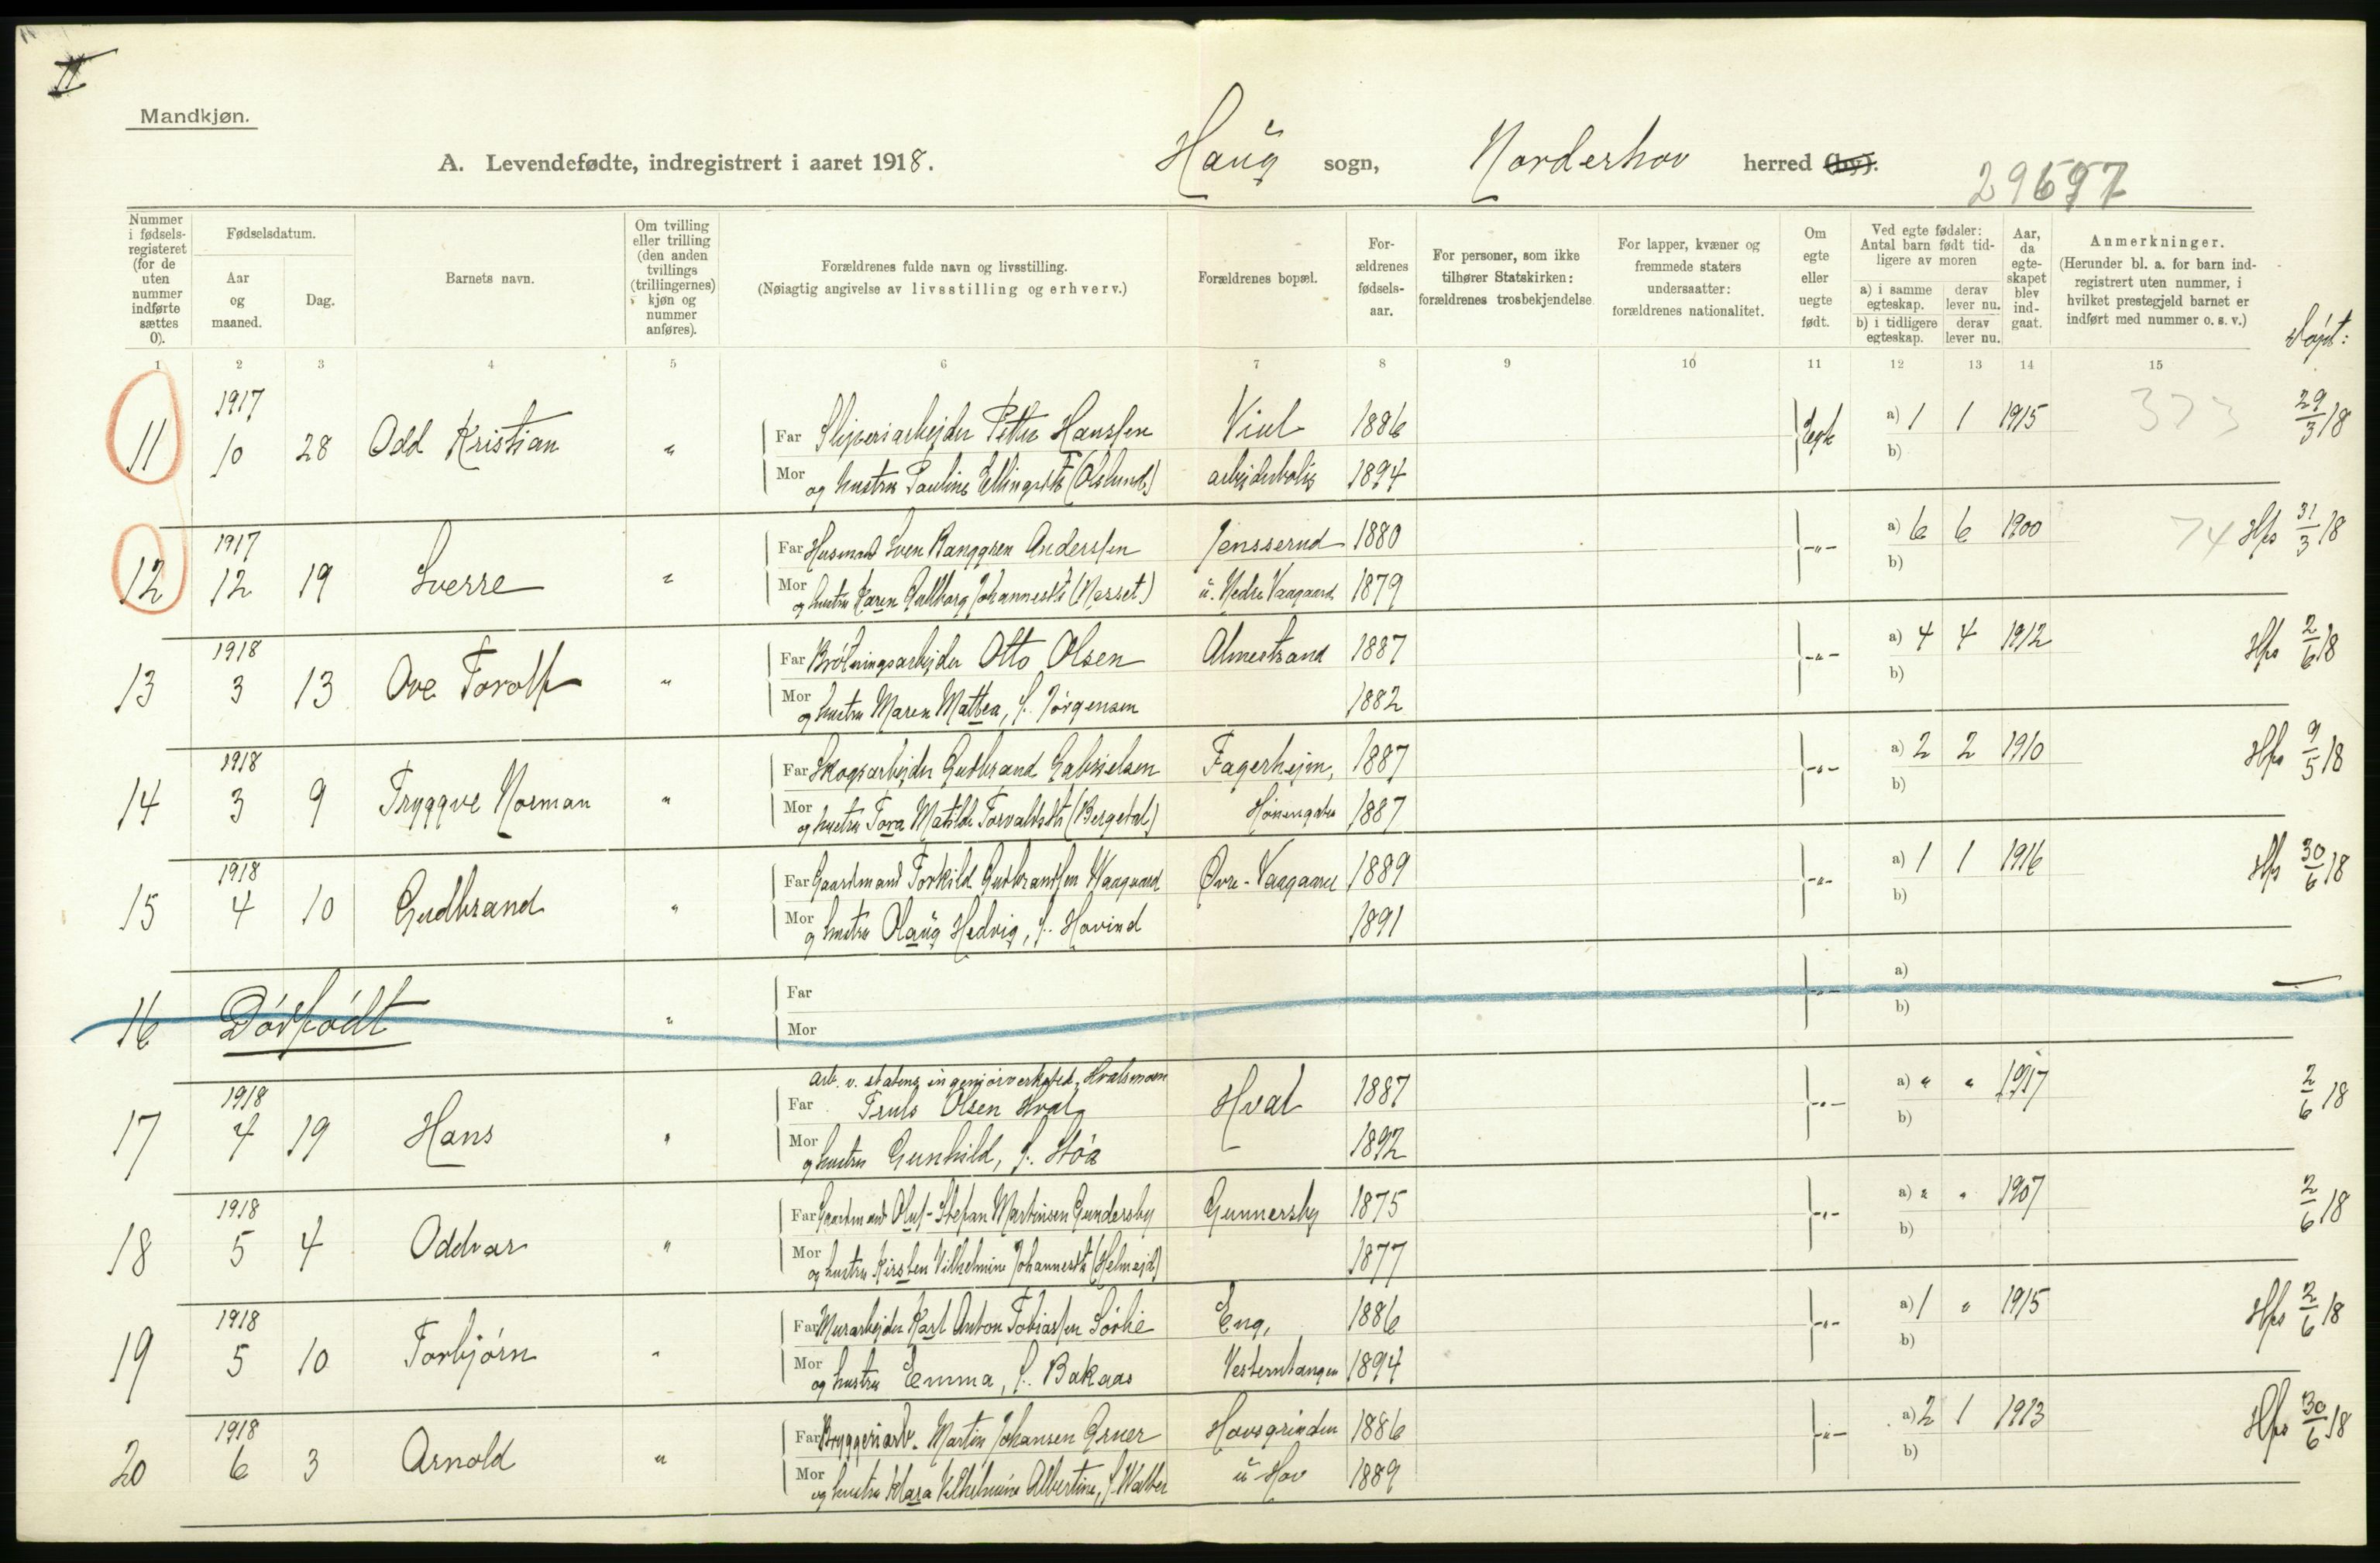 II
Mandkjøn.
A. Levendefødte, indregistrert i aaret 1918.
Haug sogn, Norderhov herred (by).
29697
Nummer i fødsels-registeret (for de uten nummer indførte sættes 0).
Fødselsdatum.
Aar og maaned.
Dag.
Barnets navn.
Om tvilling eller trilling (den anden tvillings (trillingernes) kjøn og nummer anføres).
Forældrenes fulde navn og livsstilling.
(Nøiagtig angivelse av livsstilling og erhverv.)
Forældrenes bopæl.
For-ældrenes fødsels-aar.
For personer, som ikke tilhører Statskirken: forældrenes trosbekjendelse
For lapper, kvæner og fremmede staters undersaatter: forældrenes nationalitet.
Om egte eller uegte født.
Ved egte fødsler: Antal barn født tid-ligere av moren
a) i samme egteskap.
derav lever nu.
b) i tidligere egteskap.
derav lever nu.
Aar, da egte-skapet blev ind-gaat.
Anmerkninger.
(Herunder bl. a. for barn ind-registrert uten nummer, i hvilket prestegjeld barnet er indført med nummer o. s. v.)
Døpt:
1 2 3 4 5 6 7 8 9 10 11 12 13 14 15
11 1917 10 28 Odd Kristian " Far Sliperiarbejder Petter Hanssen Viul 1886 Egte a) 1 1 1915 373 29/3 18
Mor og hustru Pauline Ellingsdtr (Øslund) arbejderbolig 1894 b)
12 1917 12 19 Sverre " Far Husmand Sven Ranggren Anderssen Jensserud 1880 -"- a) 6 6 1900 74 Hps 31/3 18
Mor og hustru Karen Gullborg Johannesdtr (Nesset) u. Nedre Vaagaard 1879 b)
13 1918 3 13 Ove Torolf " Far Brøtningsarbejder Otto Olsen Almestrand 1887 -"- a) 4 4 1912 Hps 2/6 18
Mor og hustru Maren Mathea, f. Jörgensen 1882 b)
14 1918 3 9 Tryggve Norman " Far Skogsarbejder Gudbrand Gabrielsen Fagerhejm, 1887 -"- a) 2 2 1910 Hps 9/5 18
Mor og hustru Tora Matilde Torvaldsdtr (Bergedal) Hønengaten 1887 b)
15 1918 4 10 Gudbrand " Far Gaardmand Torkild Gudbrandsen Vaagaard Øvre-Vaagaard 1889 -"- a) 1 1 1916 Hps 30/6 18
Mor og hustru Olaug Hedvig, f. Hovind 1891 b)
16 Dödfödt " Far -"- a) —
Mor b)
17 1918 4 19 Hans " arb. v. statens ingeniörverksted, Hvalsmoen
Far Truls Olsen Hval Hval 1887 -"- a) " " 1917 2/6 18
Mor og hustru Gunhild, f. Stöa 1892 b)
18 1918 5 4 Oddvar " Far Gaardmand Oluf-Stefan Martinsen Gundersby Gunnersby 1875 -"- a) " " 1907 2/6 18
Mor og hustru Kirsten Vilhelmine Johannesdtr (Helmejd) 1877 b)
19 1918 5 10 Torbjörn " Far Murarbejder Karl Anton Tobiassen Sörlie Eng, 1886 -"- a) 1 " 1915 Hps 2/6 18
Mor og hustru Emma, f. Bakaas Vesterntangen 1894 b)
20 1918 6 3 Arnold " Far Bryggeriarb. Martin Johansen Gruer Hovsgrinden 1886 -"- a) 2 1 1913 Hps 30/6 18
Mor og hustru Klara Vilhelmine Albertine, f. Walber u Hov 1889 b)